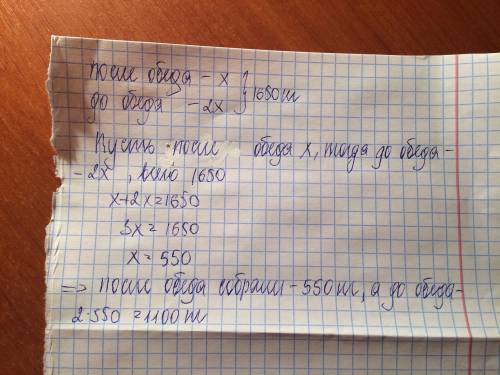 после обеда - x } 1650 кг
до обеда - 2x
Пусть после обеда x, тогда до обеда -
- 2x, всего 1650
x+2x=1650
3x=1650
x=550
=> после обеда собрали - 550 кг, а до обеда -
2·550=1100 кг